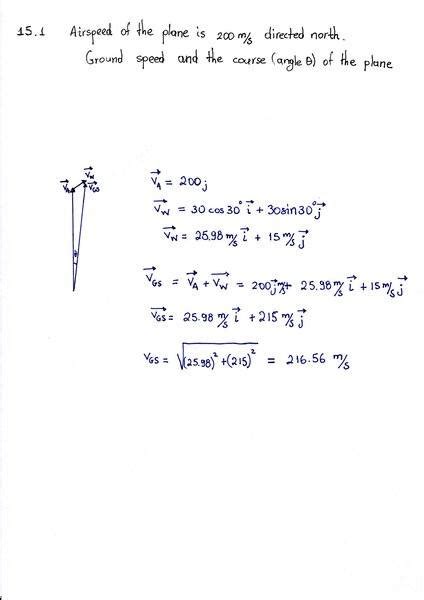 15.1 Airspeed of the plane is 200 m/s directed north.
Ground speed and the course (angle θ) of the plane
V⃗w
V⃗A V⃗GS
θ
V⃗A = 200j
V⃗w = 30 cos30° i⃗ + 30sin30° j⃗
V⃗w = 25.98 m/s i⃗ + 15 m/s j⃗
V⃗GS = V⃗A + V⃗w = 200j m/s + 25.98 m/s i⃗ + 15 m/s j⃗
V⃗GS = 25.98 m/s i⃗ + 215 m/s j⃗
VGS = √(25.98)² + (215)² = 216.56 m/s